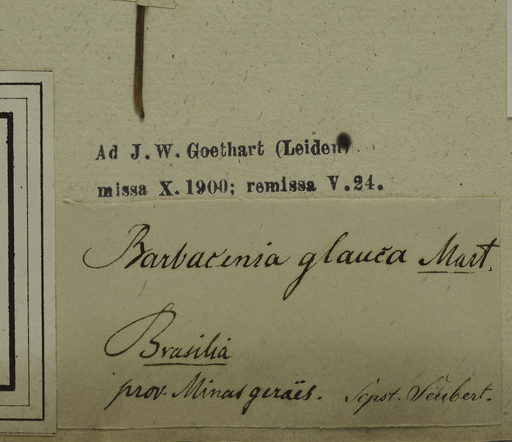 Ad J. W. Goethart (Leiden)
missa X. 1900; remissa V. 24.
Barbacenia glauca Mart.
Brasilia
prov. Minas geraës. Scpst. Seubert.